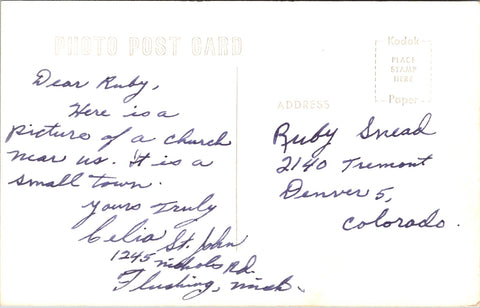 PHOTO POST CARD
Kodak
PLACE
STAMP
HERE
Paper
Dear Ruby,
Here is a
picture of a church
near us. It is a
small town.
Yours Truly
Celia St. John
1245 Nichols Rd.
Flushing, Mich.
ADDRESS
Ruby Snead
2140 Tremont
Denver 5,
Colorado.